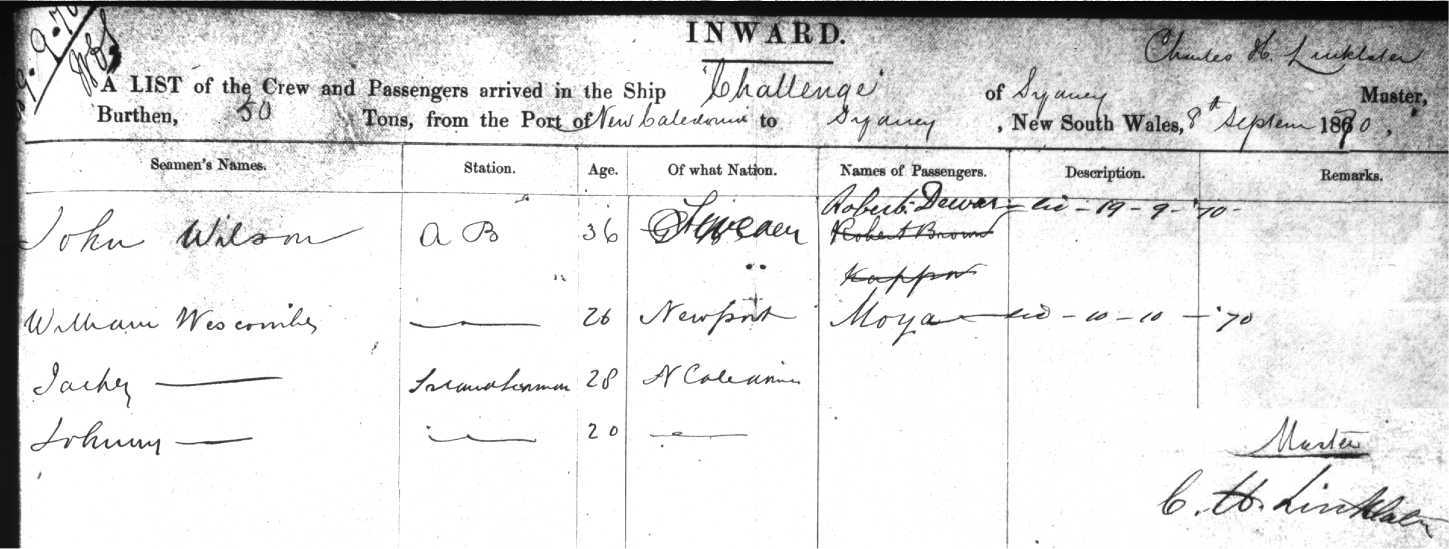 9.9.70
INWARD.
Charles H. Linklater
A LIST of the Crew and Passengers arrived in the Ship "Challenge" of Sydney Master,
Burthen, 50 Tons, from the Port of New Caledonia to Sydney, New South Wales, 8th Septem 1870,
Seamen's Names. Station. Age. Of what Nation. Names of Passengers. Description. Remarks.
Robert Dewar 19-9-'70-
John Wilson A B 36 Sweden Robert Brown
Kappor
William Wescombe 26 Newport Moya 10-10-'70
Jackey 28 N Caledonia
Johnny 20
Master
C. H. Linklater